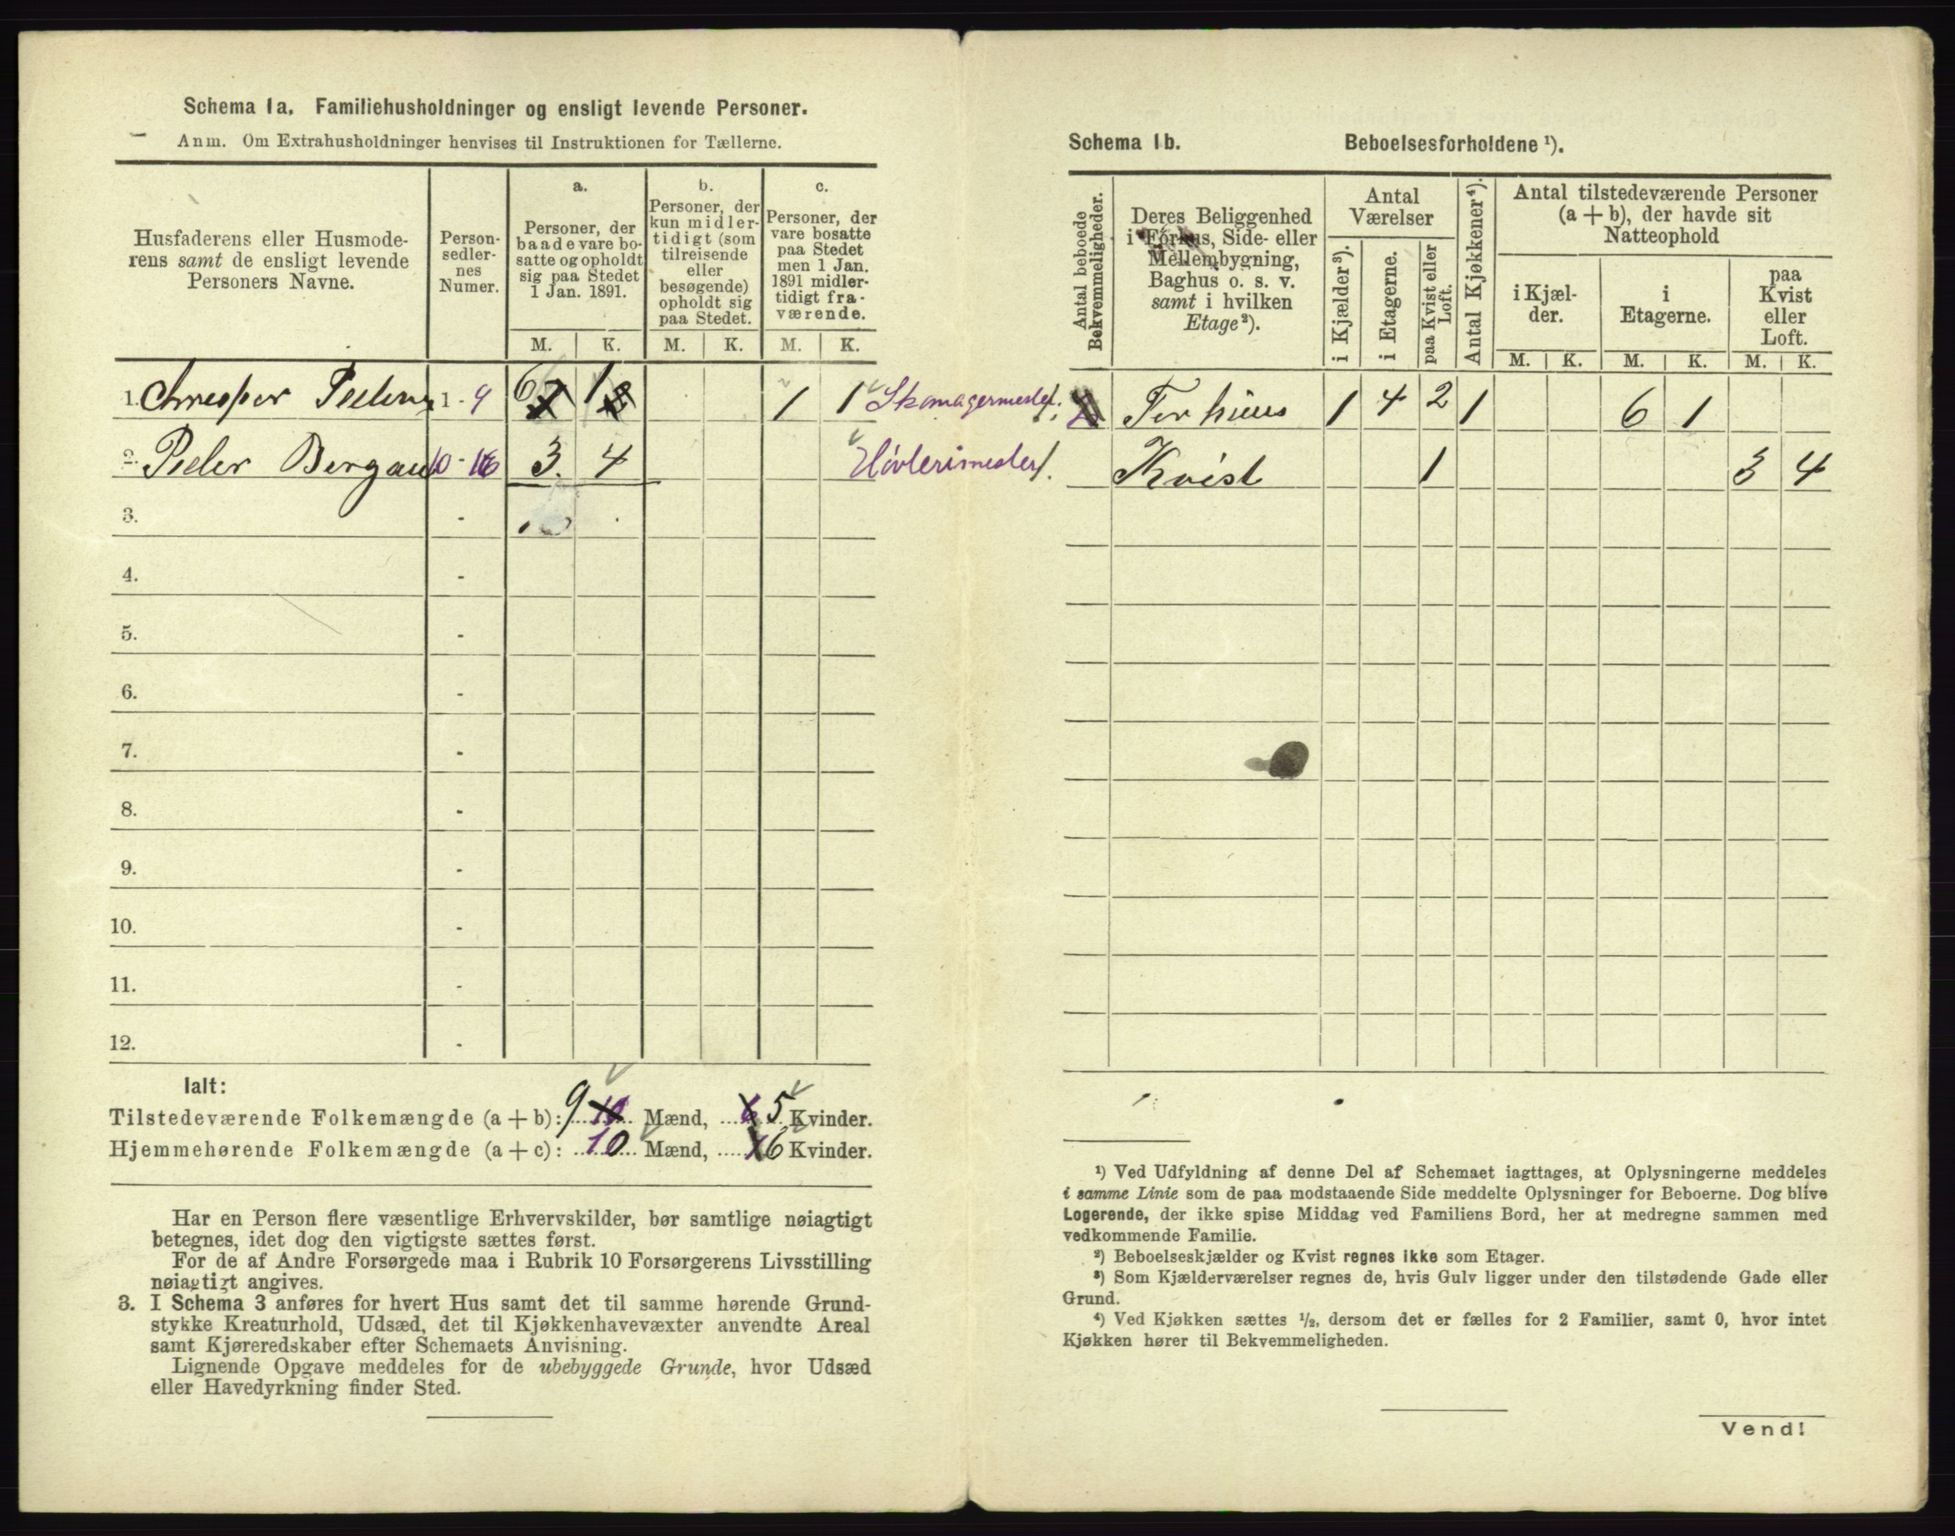 Schema 1a. Familiehusholdninger og ensligt levende Personer.
Anm. Om Extrahusholdninger henvises til Instruktionen for Tællerne.
Husfaderens eller Husmode-
rens samt de ensligt levende
Personers Navne.
Person-
sedler-
nes
Numer.
a.
Personer, der
baade vare bo-
satte og opholdt
sig paa Stedet
1 Jan. 1891.
b.
Personer, der
kun midler-
tidigt (som
tilreisende
eller
besøgende)
opholdt sig
paa Stedet.
c.
Personer, der
vare bosatte
paa Stedet
men 1 Jan.
1891 midler-
tidigt fra-
værende.
M. K. M. K. M. K.
1. 1 - 9 6 1 1 1 Skomagermester
2. Peder Bergan 10 - 16 3 4
3. -
4. -
5. -
6. -
7. -
8. -
9. -
10. -
11. -
12. -
Ialt:
Tilstedeværende Folkemængde (a + b): 9 Mænd, 5 Kvinder.
Hjemmehørende Folkemængde (a + c): 10 Mænd, 6 Kvinder.
Har en Person flere væsentlige Erhvervskilder, bør samtlige nøiagtigt
betegnes, idet dog den vigtigste sættes først.
For de af Andre Forsørgede maa i Rubrik 10 Forsørgerens Livsstilling
nøiagtigt angives.
3. I Schema 3 anføres for hvert Hus samt det til samme hørende Grund-
stykke Kreaturhold, Udsæd, det til Kjøkkenhavevæxter anvendte Areal
samt Kjøreredskaber efter Schemaets Anvisning.
Lignende Opgave meddeles for de ubebyggede Grunde, hvor Udsæd
eller Havedyrkning finder Sted.
Schema 1b. Beboelsesforholdene ¹).
Antal beboede
Bekvemmeligheder.
Deres Beliggenhed
i Forhus, Side- eller
Mellembygning,
Baghus o. s. v.
samt i hvilken
Etage²).
Antal
Værelser
i Kjælder³).
i Etagerne.
paa Kvist eller
Loft.
Antal Kjøkkener⁴).
Antal tilstedeværende Personer
(a + b), der havde sit
Natteophold
i Kjæl-
der.
i
Etagerne.
paa
Kvist
eller
Loft.
M. K. M. K. M. K.
Forhuus 1 4 2 1 6 1
Kvist 1 3 4
¹) Ved Udfyldning af denne Del af Schemaet iagttages, at Oplysningerne meddeles
i samme Linie som de paa modstaaende Side meddelte Oplysninger for Beboerne. Dog blive
Logerende, der ikke spise Middag ved Familiens Bord, her at medregne sammen med
vedkommende Familie.
²) Beboelseskjælder og Kvist regnes ikke som Etager.
³) Som Kjælderværelser regnes de, hvis Gulv ligger under den tilstødende Gade eller
Grund.
⁴) Ved Kjøkken sættes ½, dersom det er fælles for 2 Familier, samt 0, hvor intet
Kjøkken hører til Bekvemmeligheden.
Vend!